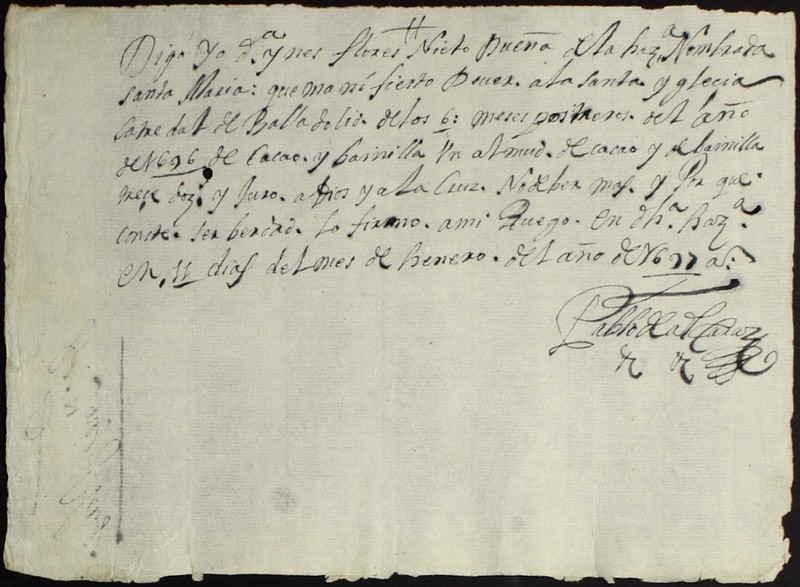 Digo Yo d.ª ynes flores Nieto Dueña de la haz.ª Nombrada
santa Maria: que manifiesto Dever. a la santa yglecia
catredal de Balladolid. de los 6: meses postreros. del año
de 1696 de Cacao. y bainilla Un almud. de cacao y de bainilla
doz.ˢ y Juro. a Dios y a la Cruz. No deber mas. y Por que.
conste. ser berdad. lo firmo. a mi Ruego. en dh.ª haz.ª
en. 11 dias del mes de henero. del año de 1697 as.
Pablo de Alcaraz